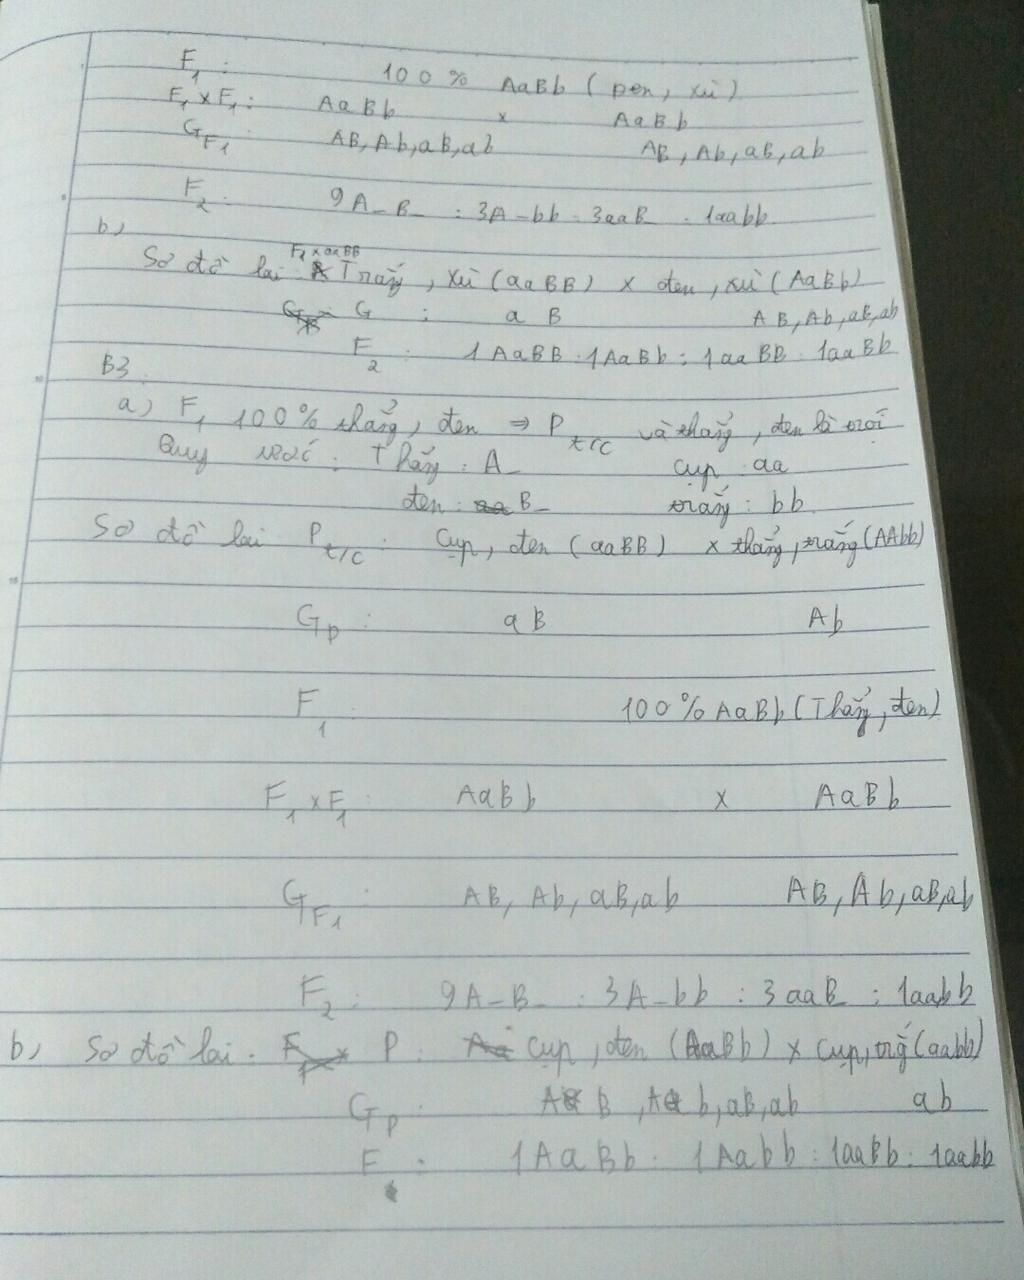 F1 : 100% AaBb ( đen, xù )
F1 x F1 : AaBb x AaBb
GF1 AB, Ab, aB, ab AB, Ab, aB, ab
F2 : 9A-B- : 3A-bb : 3aaB- : 1aabb
b,
F1 x aaBB
Sơ đồ lai : Trắng, xù (aaBB) x đen, xù (AaBb)
G : aB AB, Ab, aB, ab
F2 : 1AaBB : 1AaBb : 1aaBB : 1aaBb
B3
a) F1 100% thẳng, đen => Pt/c và thẳng, đen là trội
Quy ước : Thẳng : A- cụp : aa
đen : B- trắng : bb
Sơ đồ lai Pt/c : Cụp, đen (aaBB) x thẳng, trắng (AAbb)
Gp : aB Ab
F1 : 100% AaBb (Thẳng, đen)
F1 x F1 : AaBb x AaBb
GF1 : AB, Ab, aB, ab AB, Ab, aB, ab
F2 : 9A-B- : 3A-bb : 3aaB- : 1aabb
b, Sơ đồ lai : P : cụp, đen (AaBb) x cụp, trắng (aabb)
Gp : AB, Ab, aB, ab ab
F : 1AaBb : 1Aabb : 1aaBb : 1aabb